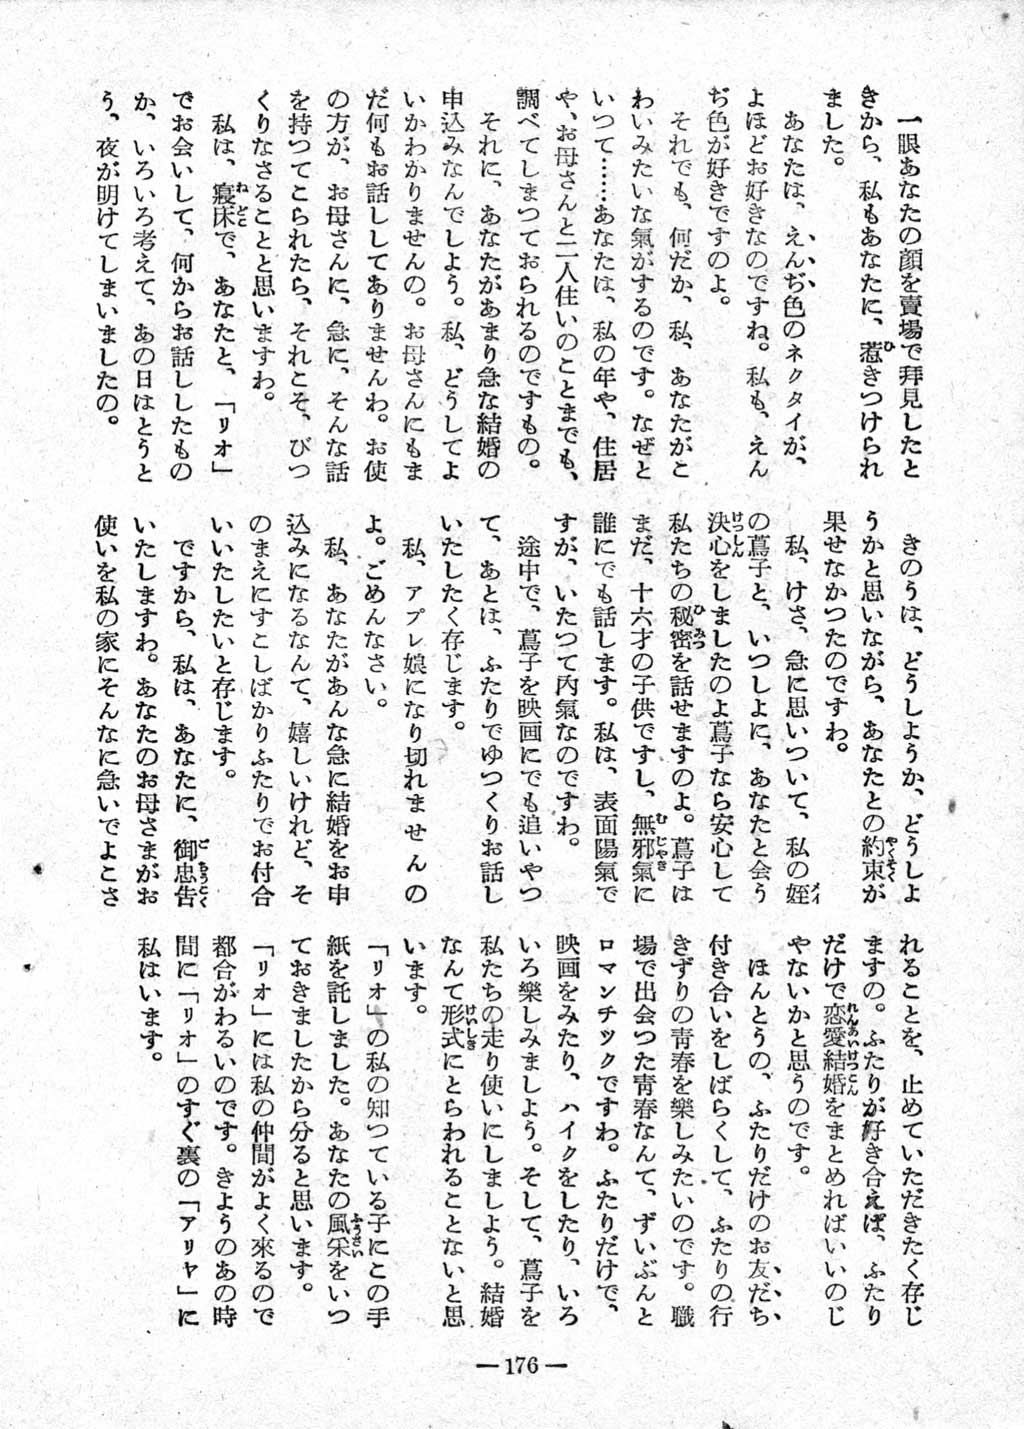 一眼あなたの顔を賣場で拜見したと
きから、私もあなたに、惹きつけられ
ました。
あなたは、えんぢ色のネクタイが、
よほどお好きなのですね。私も、えん
ぢ色が好きですのよ。
それでも、何だか、私、あなたがこ
わいみたいな氣がするのです。なぜと
いつて……あなたは、私の年や、住居
や、お母さんと二人住いのことまでも、
調べてしまつておられるのですもの。
それに、あなたがあまり急な結婚の
申込みなんでしよう。私、どうしてよ
いかわかりませんの。お母さんにもま
だ何もお話ししてありませんわ。お使
の方が、お母さんに、急に、そんな話
を持つてこられたら、それこそ、びつ
くりなさることと思いますわ。
私は、寢床で、あなたと、「リオ」
でお会いして、何からお話ししたもの
か、いろいろ考えて、あの日はとうと
う、夜が明けてしまいましたの。
きのうは、どうしようか、どうしよ
うかと思いながら、あなたとの約束が
果せなかつたのですわ。
私、けさ、急に思いついて、私の姪
の蔦子と、いつしよに、あなたと会う
決心をしましたのよ蔦子なら安心して
私たちの秘密を話せますのよ。蔦子は
まだ、十六才の子供ですし、無邪氣に
誰にでも話します。私は、表面陽氣で
すが、いたつて内氣なのですわ。
途中で、蔦子を映画にでも追いやつ
て、あとは、ふたりでゆつくりお話し
いたしたく存じます。
私、アプレ娘になり切れませんの
よ。ごめんなさい。
私、あなたがあんな急に結婚をお申
込みになるなんて、嬉しいけれど、そ
のまえにすこしばかりふたりでお付合
いいたしたいと存じます。
ですから、私は、あなたに、御忠告
いたしますわ。あなたのお母さまがお
使いを私の家にそんなに急いでよこさ
れることを、止めていただきたく存じ
ますの。ふたりが好き合えば、ふたり
だけで恋愛結婚をまとめればいいのじ
やないかと思うのです。
ほんとうの、ふたりだけのお友だち
付き合いをしばらくして、ふたりの行
きずりの靑春を樂しみたいのです。職
場で出会つた靑春なんて、ずいぶんと
ロマンチツクですわ。ふたりだけで、
映画をみたり、ハイクをしたり、いろ
いろ樂しみましよう。そして、蔦子を
私たちの走り使いにしましよう。結婚
なんて形式にとらわれることないと思
います。
「リオ」の私の知つている子にこの手
紙を託しました。あなたの風采をいつ
ておきましたから分ると思います。
「リオ」には私の仲間がよく來るので
都合がわるいのです。きようのあの時
間に「リオ」のすぐ裏の「アリヤ」に
私はいます。
— 176 —